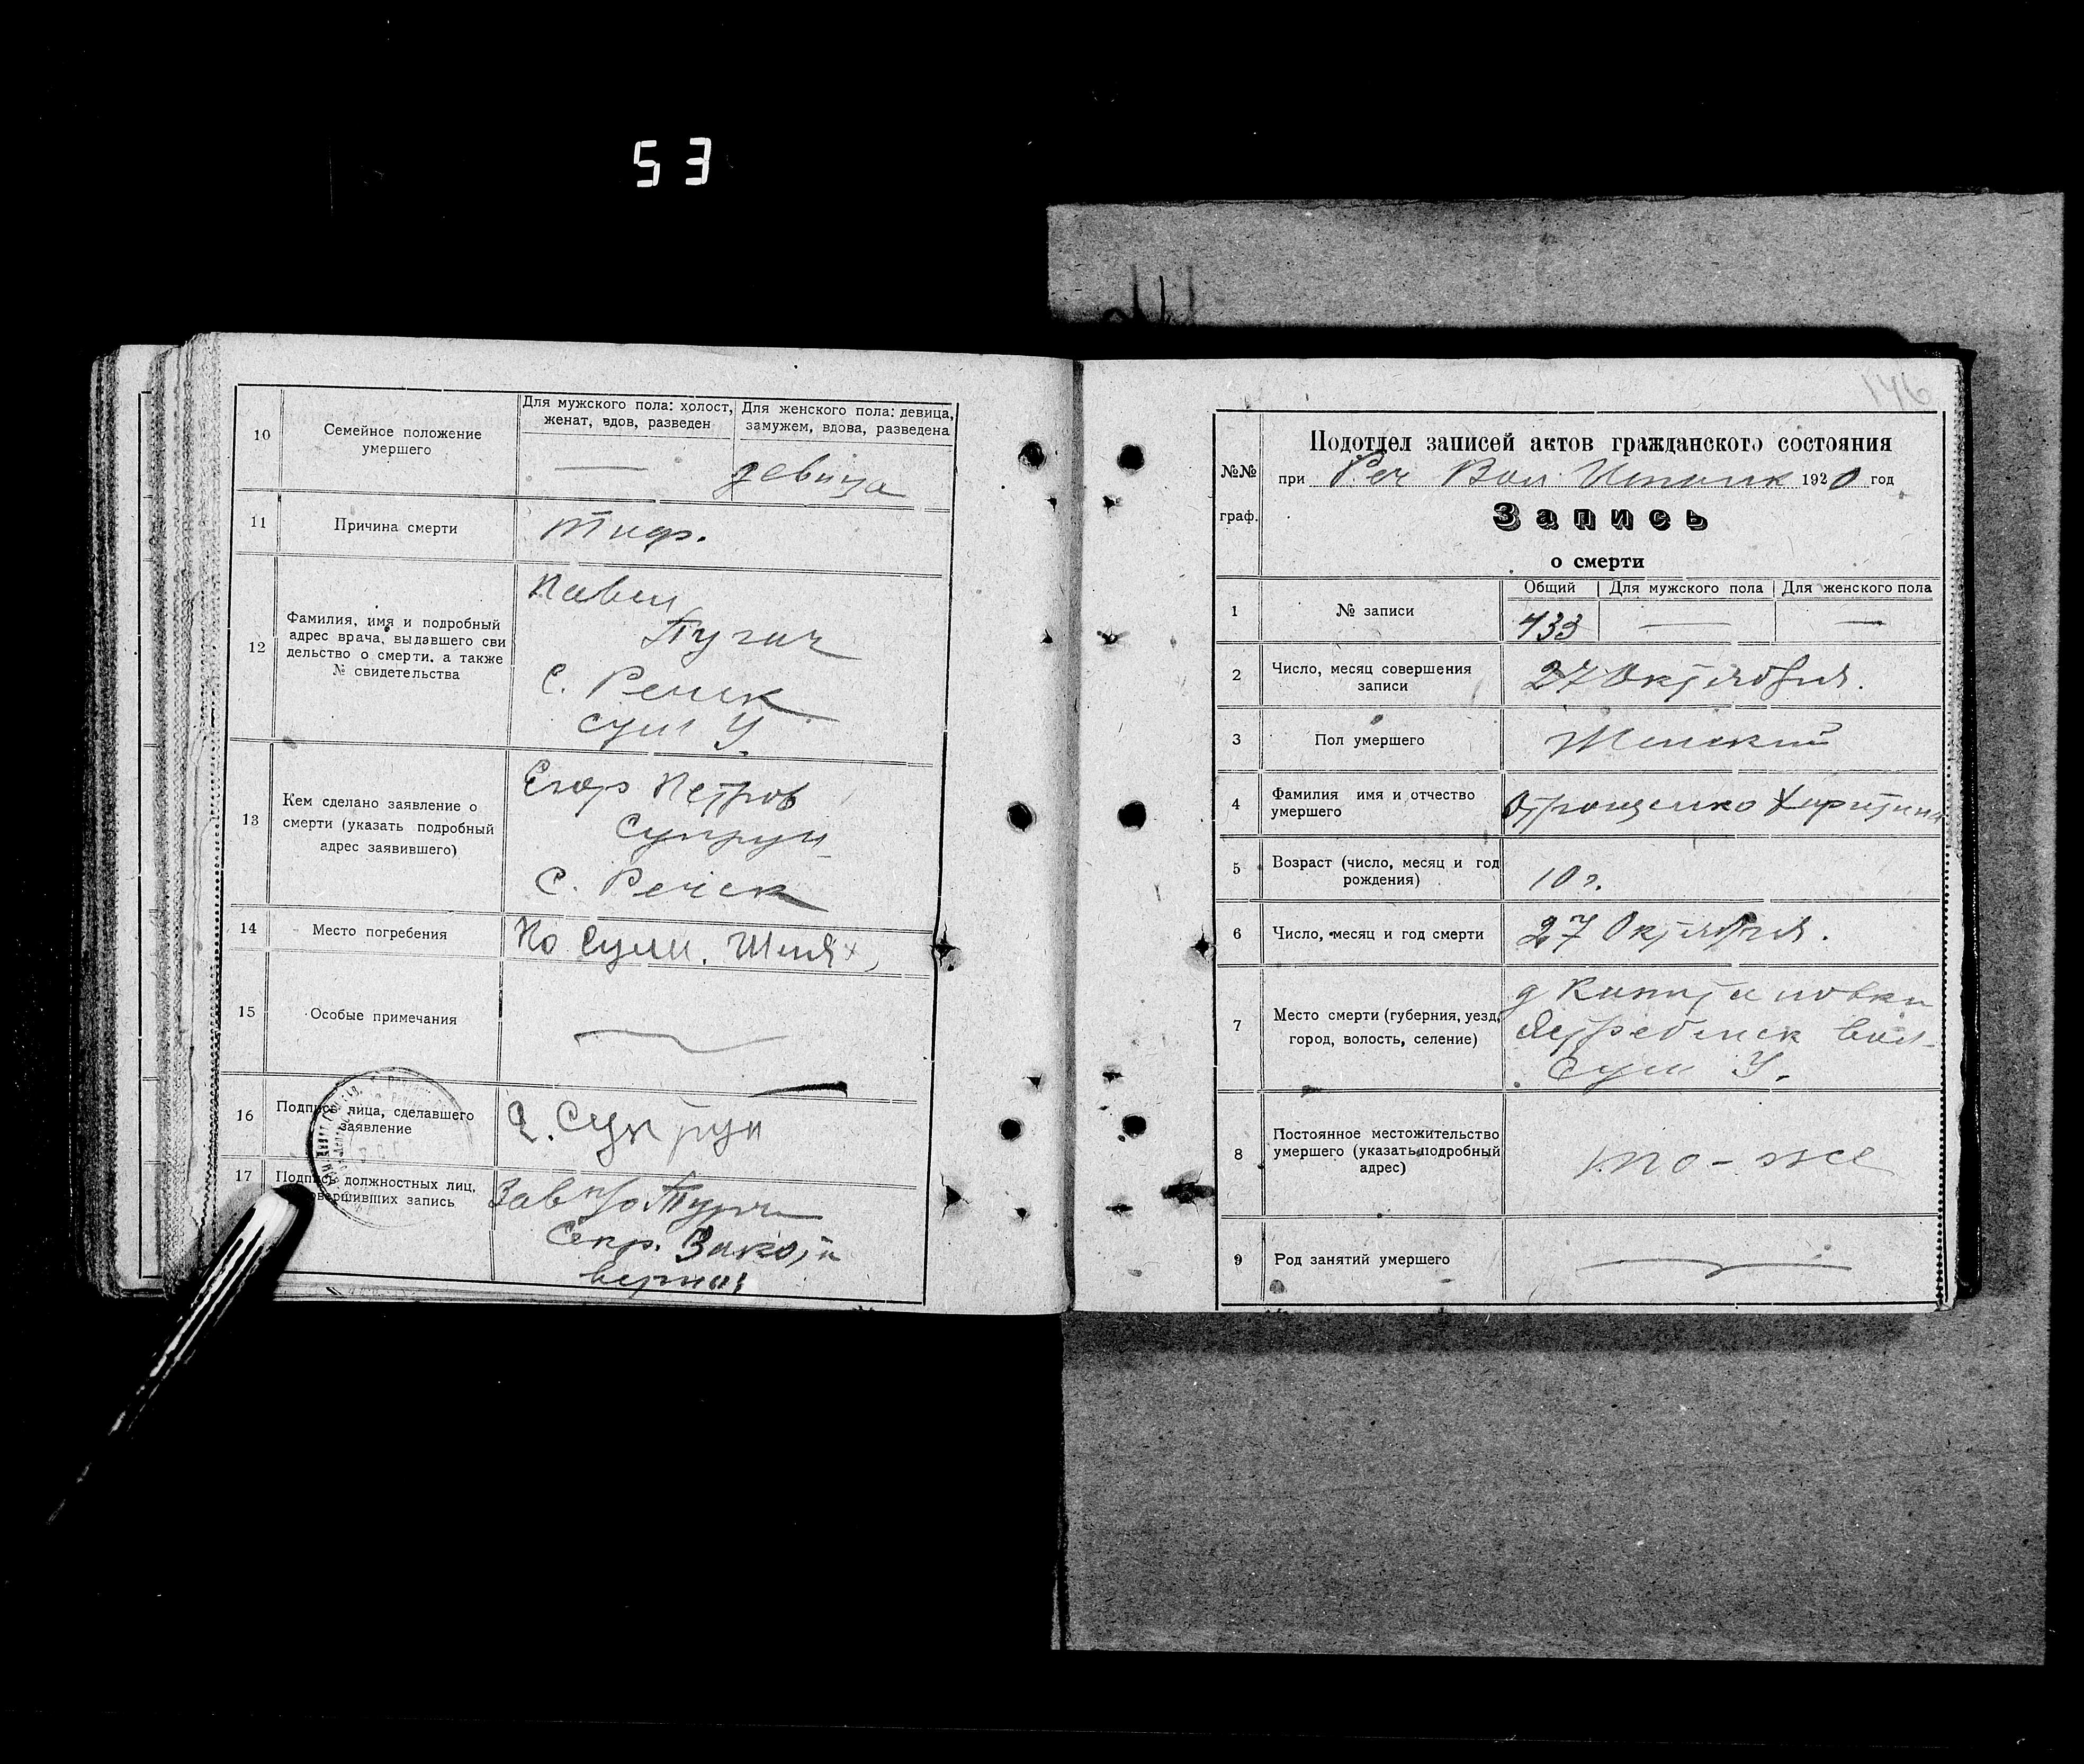 53
10
Семейное положение
умершего
Для мужского пола: холост,
женат, вдов, разведен
Для женского пола: девица,
замужем, вдова, разведена
девица
11
Причина смерти
Тиф.
12
Фамилия, имя и подробный
адрес врача, выдавшего сви
детельство о смерти, а также
№ свидетельства
Павел
Пугач
С. Речек
Сум У.
13
Кем сделано заявление о
смерти (указать подробный
адрес заявившего)
Егор Петров
Супрун
С. Речек
14
Место погребения
По Сум.
15
Особые примечания
16
Подпись лица, сделавшего
заявление
Супрун
17
Подпись должностных лиц,
совершивших запись
Зав
Секр.
верно:
146
№№
граф.
Подотдел записей актов гражданского состояния
при Реч Вол Исполк 1920 год
Запись
о смерти
1
№ записи
Общий
Для мужского пола
Для женского пола
433
2
Число, месяц совершения
записи
27 Октября.
3
Пол умершего
Женский
4
Фамилия имя и отчество
умершего
5
Возраст (число, месяц и год
рождения)
10 г.
6
Число, месяц и год смерти
27 Октября.
7
Место смерти (губерния, уезд,
город, волость, селение)
д Капитановки
Ястребенск вол.
Сум У.
8
Постоянное местожительство
умершего (указать подробный
адрес)
то-же
9
Род занятий умершего